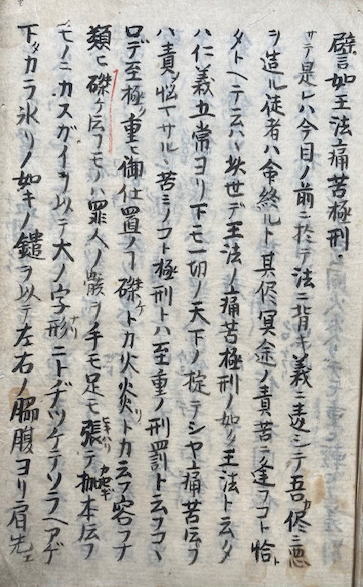 譬如王法痛苦極刑・
サテ是レハ今日ノ前ニ於テ法ニ背キ義ニ違シテ吾侭ニ悪
ヲ造ル徒者ハ命終ルト其侭冥途ノ責苦ニ逢フコト恰ト
タトヘテ云ハヽ此世デ王法ノ痛苦極刑ノ如シ王法ト云タ
ハ仁義五常ヨリ下モ一切ノ天下ノ掟テシヤ痛苦云フ
ハ責ノ悩マサル、苦ミノコト極刑トハ至重ノ刑罰ト云フコヽ
ロデ至極ノ重モ御仕置ノフ磔ケトカ火炎リトカ云フ容フナ
類ヒ磔ケ云フモノハ罪人ノ骸ヲ手モ足モ張テ枷木伝フ
モノニカスガイヲ以テ大ノ字形リニトヂツケテソラヘアゲ
下タカラ氷リノ如キノ鑓ヲ以テ左右ノ脇腹ヨリ肩先エ